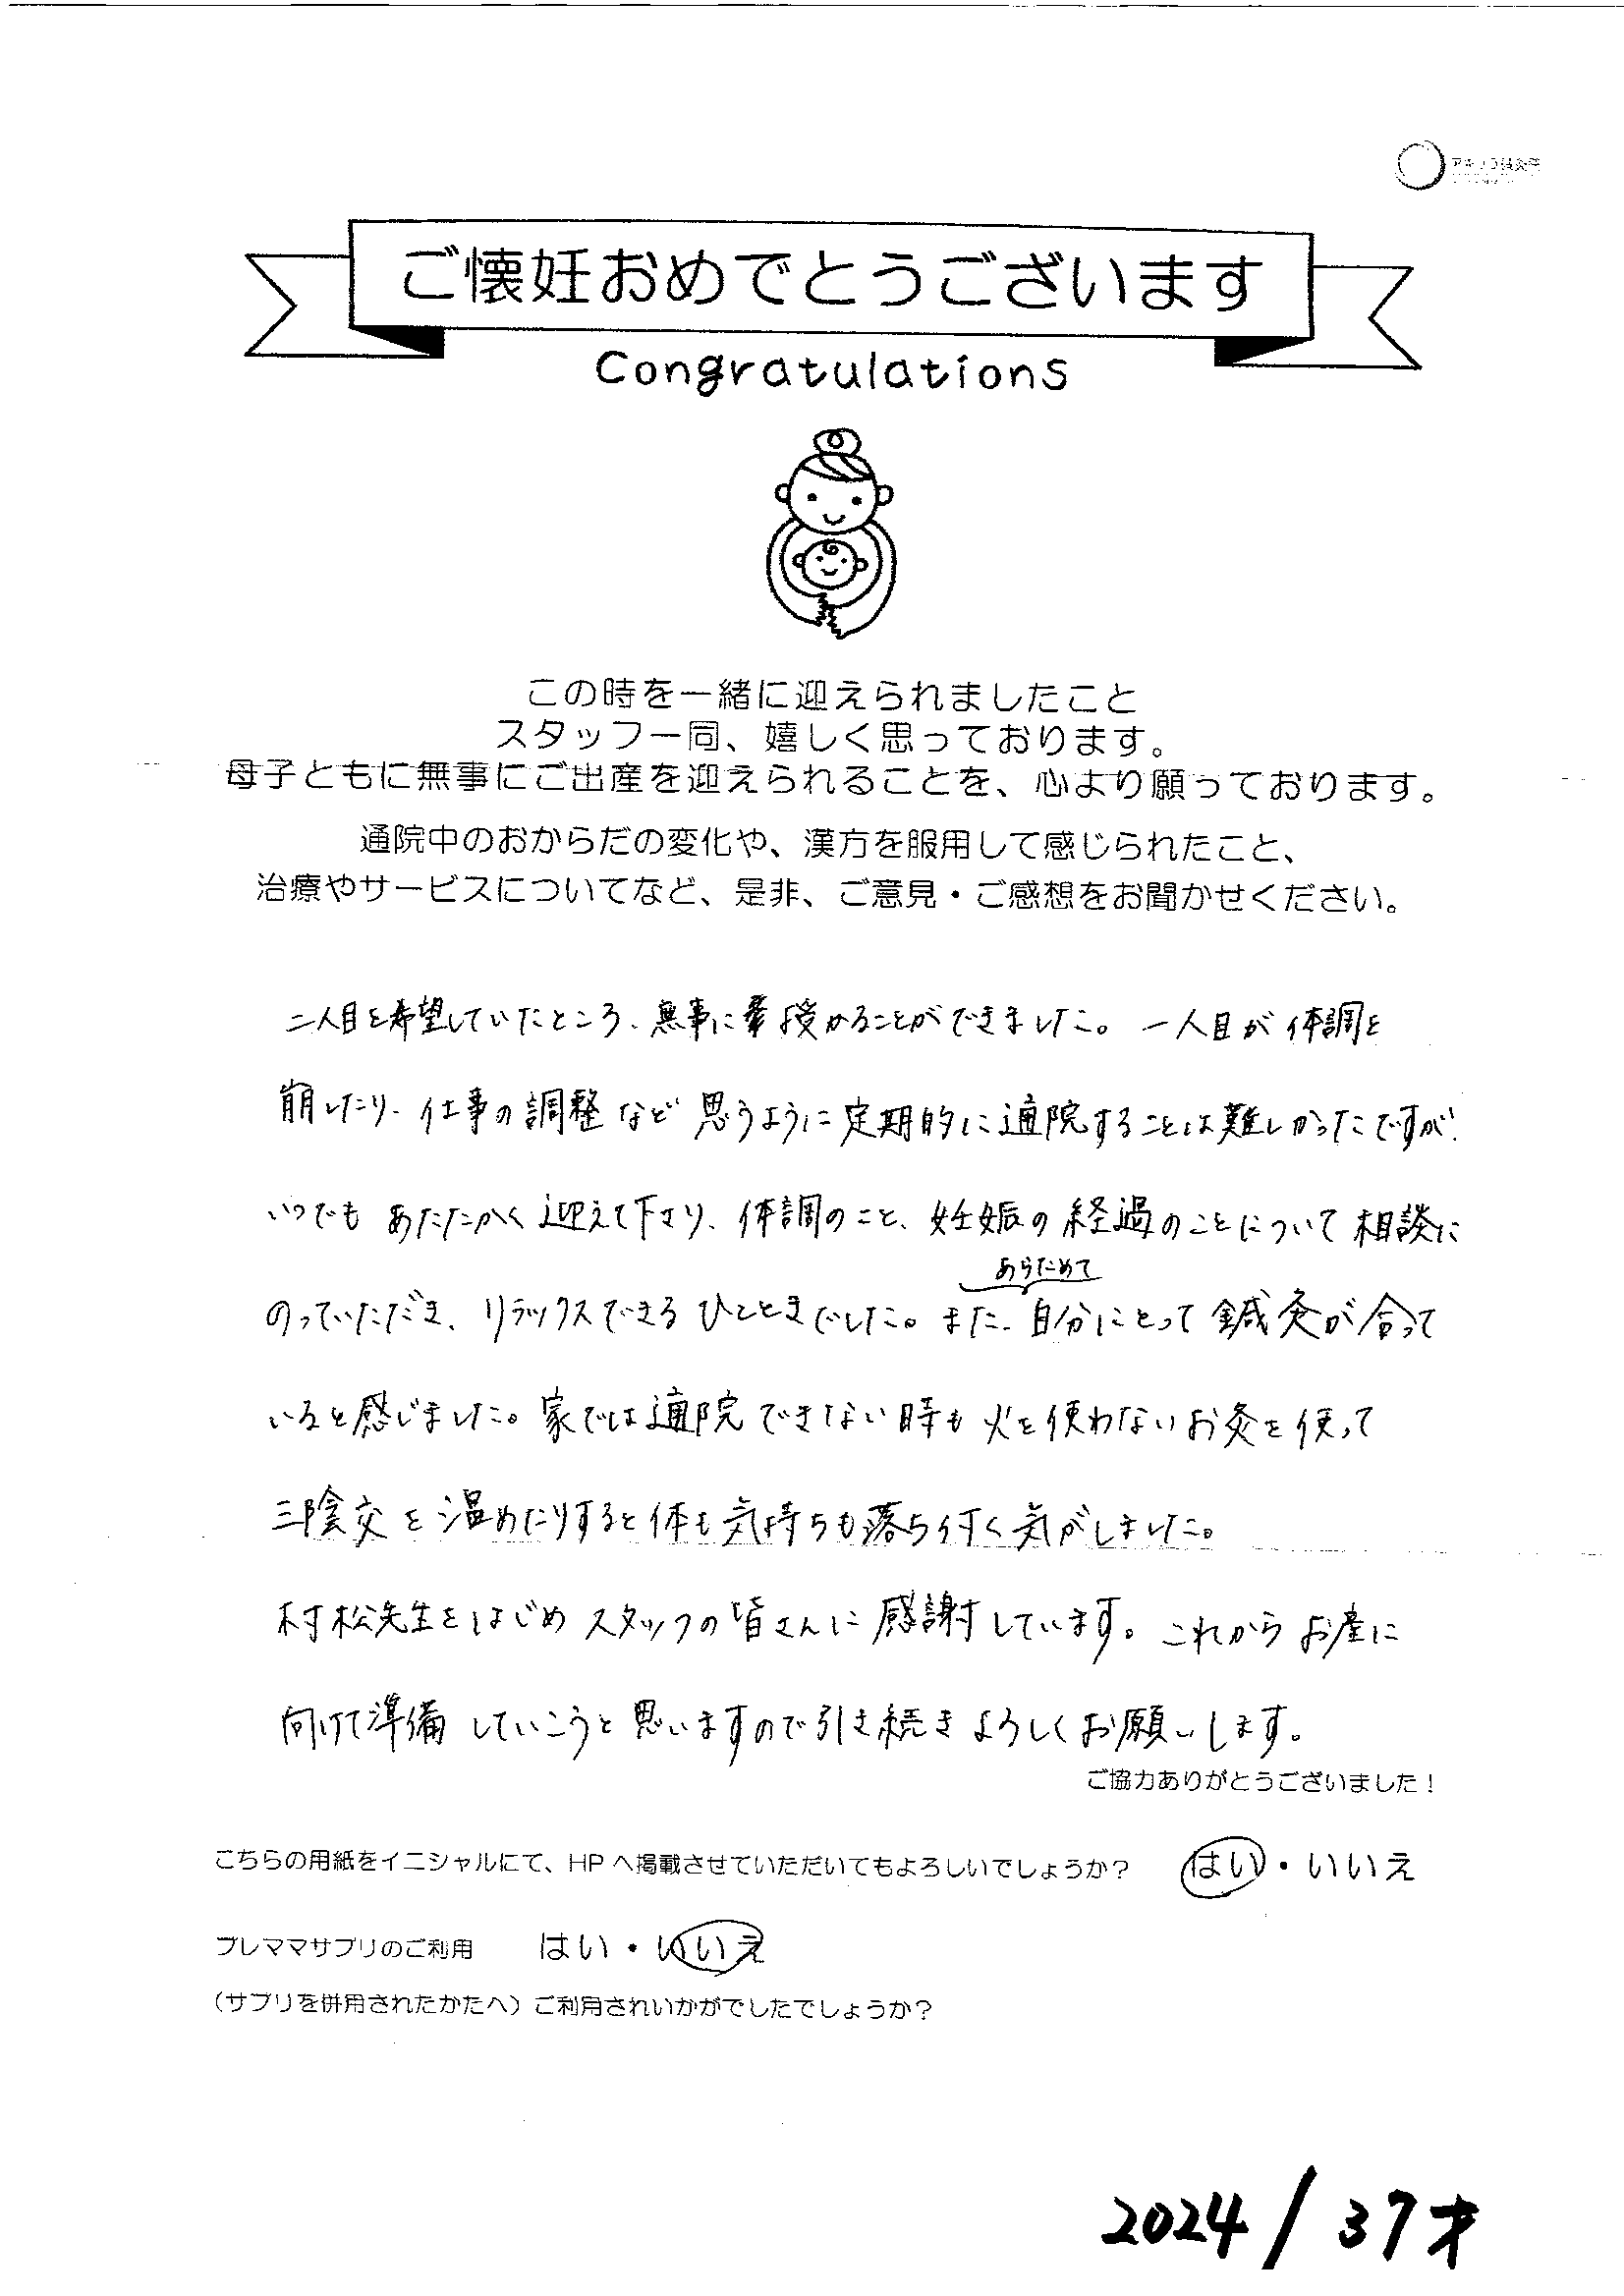 ご懐妊おめでとうございます
Congratulations
この時を一緒に迎えられましたこと
スタッフ一同、嬉しく思っております。
母子ともに無事にご出産を迎えられることを、心より願っております。
通院中のおからだの変化や、漢方を服用して感じられたこと、
治療やサービスについてなど、是非、ご意見・ご感想をお聞かせください。
二人目を希望していたところ、無事に授かることができました。一人目が体調を
崩したり、仕事の調整など思うように定期的に通院することは難しかったですが、
いつでもあたたかく迎えて下さり、体調のこと、妊娠の経過のことについて相談に
あらためて
のっていただき、リラックスできるひとときでした。また、自分にとって鍼灸が合って
いると感じました。家では通院できない時も火を使わないお灸を使って
三陰交を温めたりすると体も気持ちも落ち付く気がしました。
村松先生をはじめスタッフの皆さんに感謝しています。これからお産に
向けて準備していこうと思いますので引き続きよろしくお願いします。
ご協力ありがとうございました！
こちらの用紙をイニシャルにて、HPへ掲載させていただいてもよろしいでしょうか？ はい・いいえ
プレママサプリのご利用 はい・いいえ
（サプリを併用されたかたへ）ご利用されいかがでしたでしょうか？
2024/37才